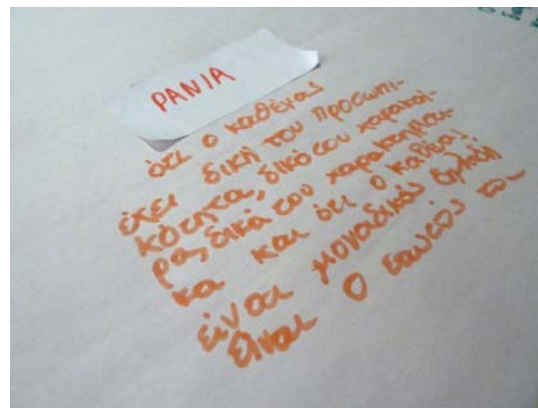 ΡΑΝΙΑ
ότι ο καθένας
έχει δική του προσωπι-
κότητα, δικό του χαρακτή-
ρα, δικά του χαρακτηριστι-
κα και ότι ο καθένας
είναι μοναδικός δηλαδή
είναι ο εαυτός του